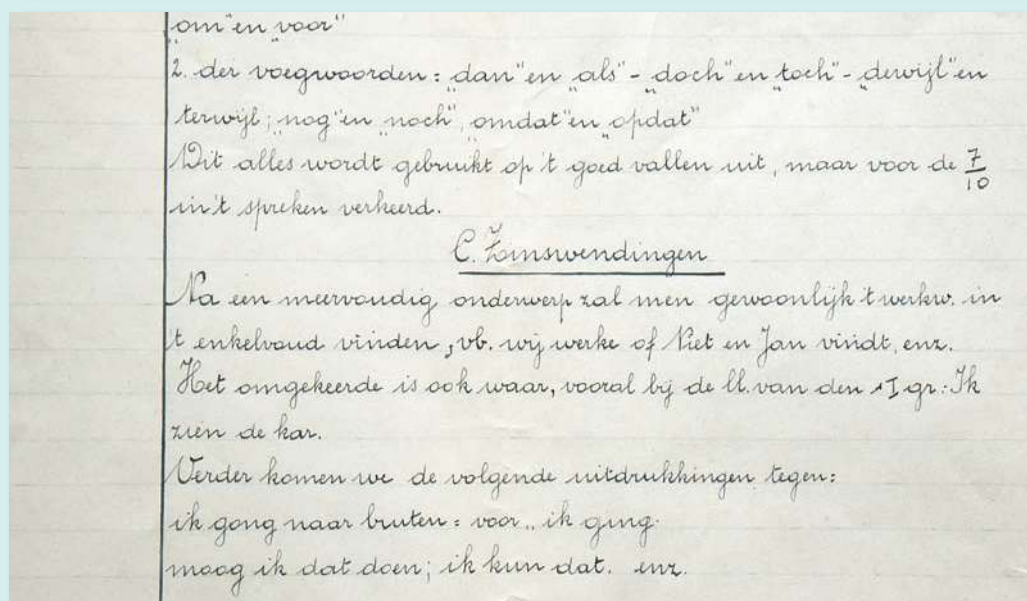 „om” en „voor”
2. der voegwoorden: „dan” en „als” - „doch” en „toch” - „derwijl” en
terwijl; „nog” en „noch”, „omdat” en „opdat”
Dit alles wordt gebruikt op 't goed vallen uit, maar voor de 7/10
in 't spreken verkeerd.
C. Zinswendingen
Na een meervoudig onderwerp zal men gewoonlijk 't werkw. in
't enkelvoud vinden, vb. wij werke of Piet en Jan vindt, enz.
Het omgekeerde is ook waar, vooral bij de ll. van den I gr.: Ik
zien de kar.
Verder komen we de volgende uitdrukkingen tegen:
ik gong naar bruten: voor „ ik ging.
moog ik dat doen; ik kun dat. enz.